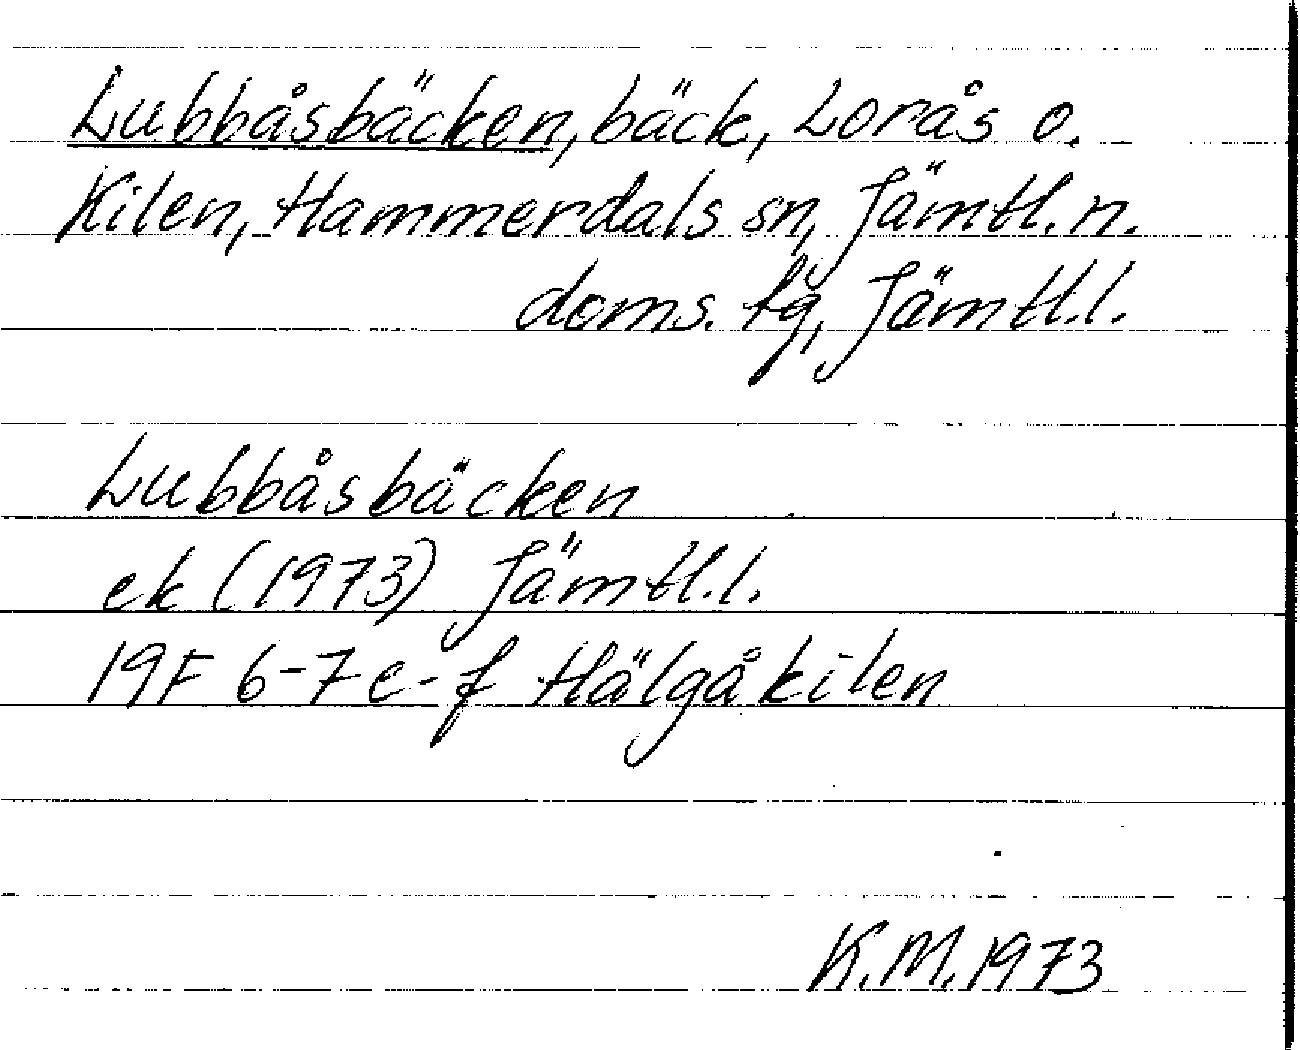 Lubbåsbäcken, bäck, Lorås o.
Kilen, Hammerdals sn, Jämtl. n.
doms. tg, Jämtl.l.
Lubbåsbäcken
ek (1973) Jämtl.l.
19F 6-7 e-f Hälgåkilen
K.M. 1973